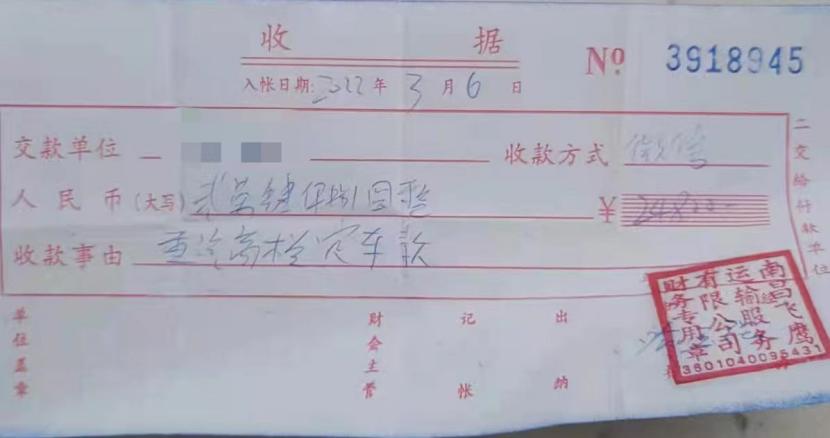 收 据
№ 3918945
入帐日期: 2022 年 3 月 6 日
交款单位 收款方式 微信
人民币(大写) 贰万肆仟捌佰圆整 ¥ 24800-
收款事由 重汽高栏定车款
二交给付款单位
单位盖章 财会主管 记帐 出纳
南昌飞鹰
运输服务
有限公司
财务专用章
3601040095431